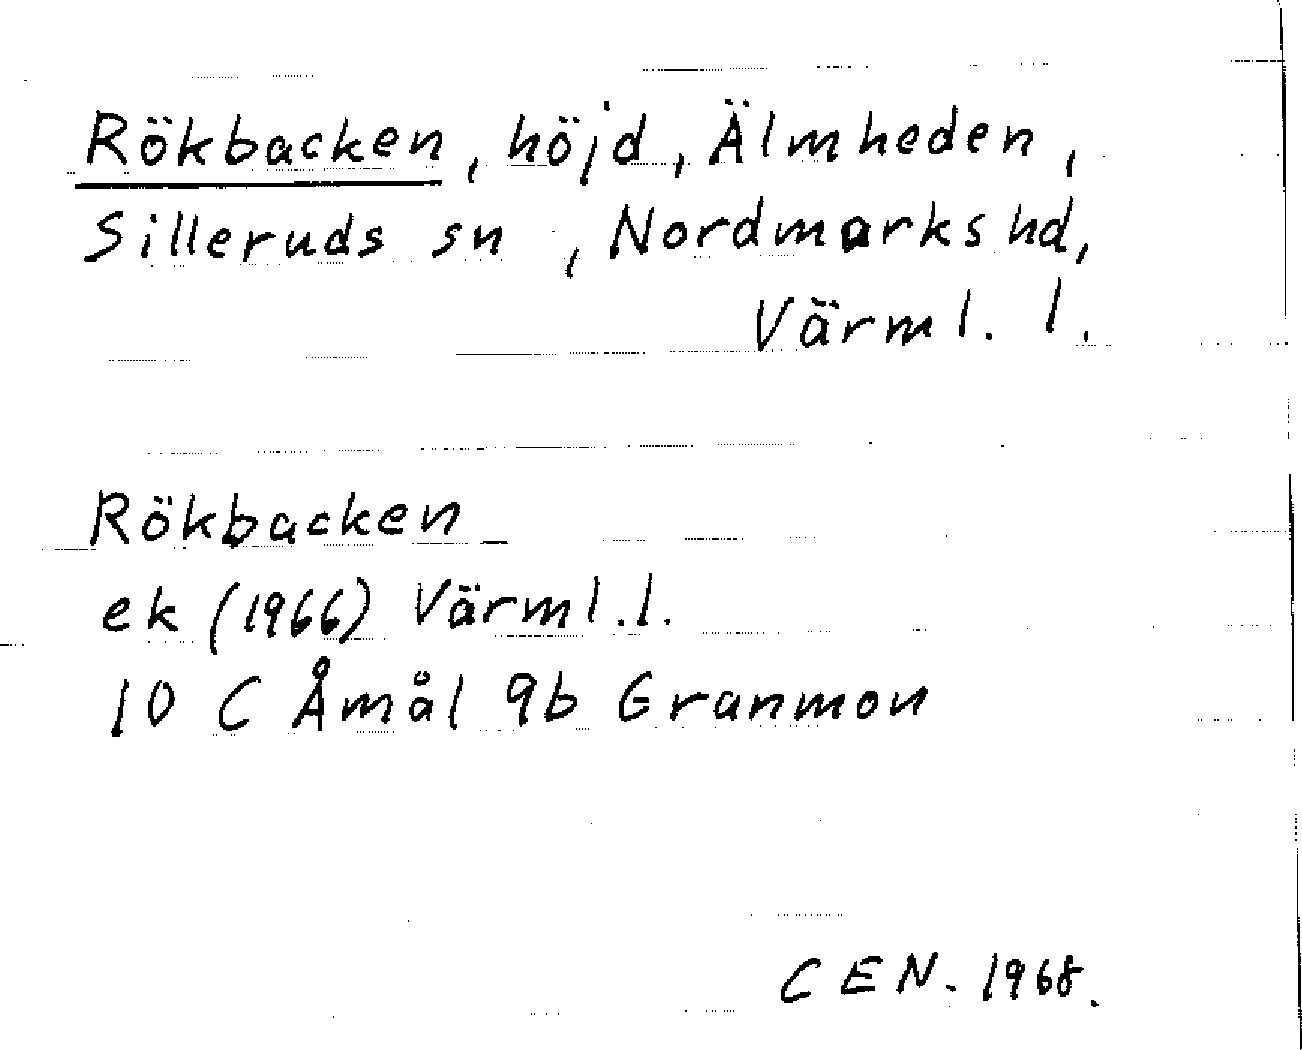 Rökbacken, höjd, Älmheden,
Silleruds sn, Nordmarks hd,
Värml. l.
Rökbacken
ek (1966) Värml.l.
10 C Åmål 9b Granmon
CEN. 1968.